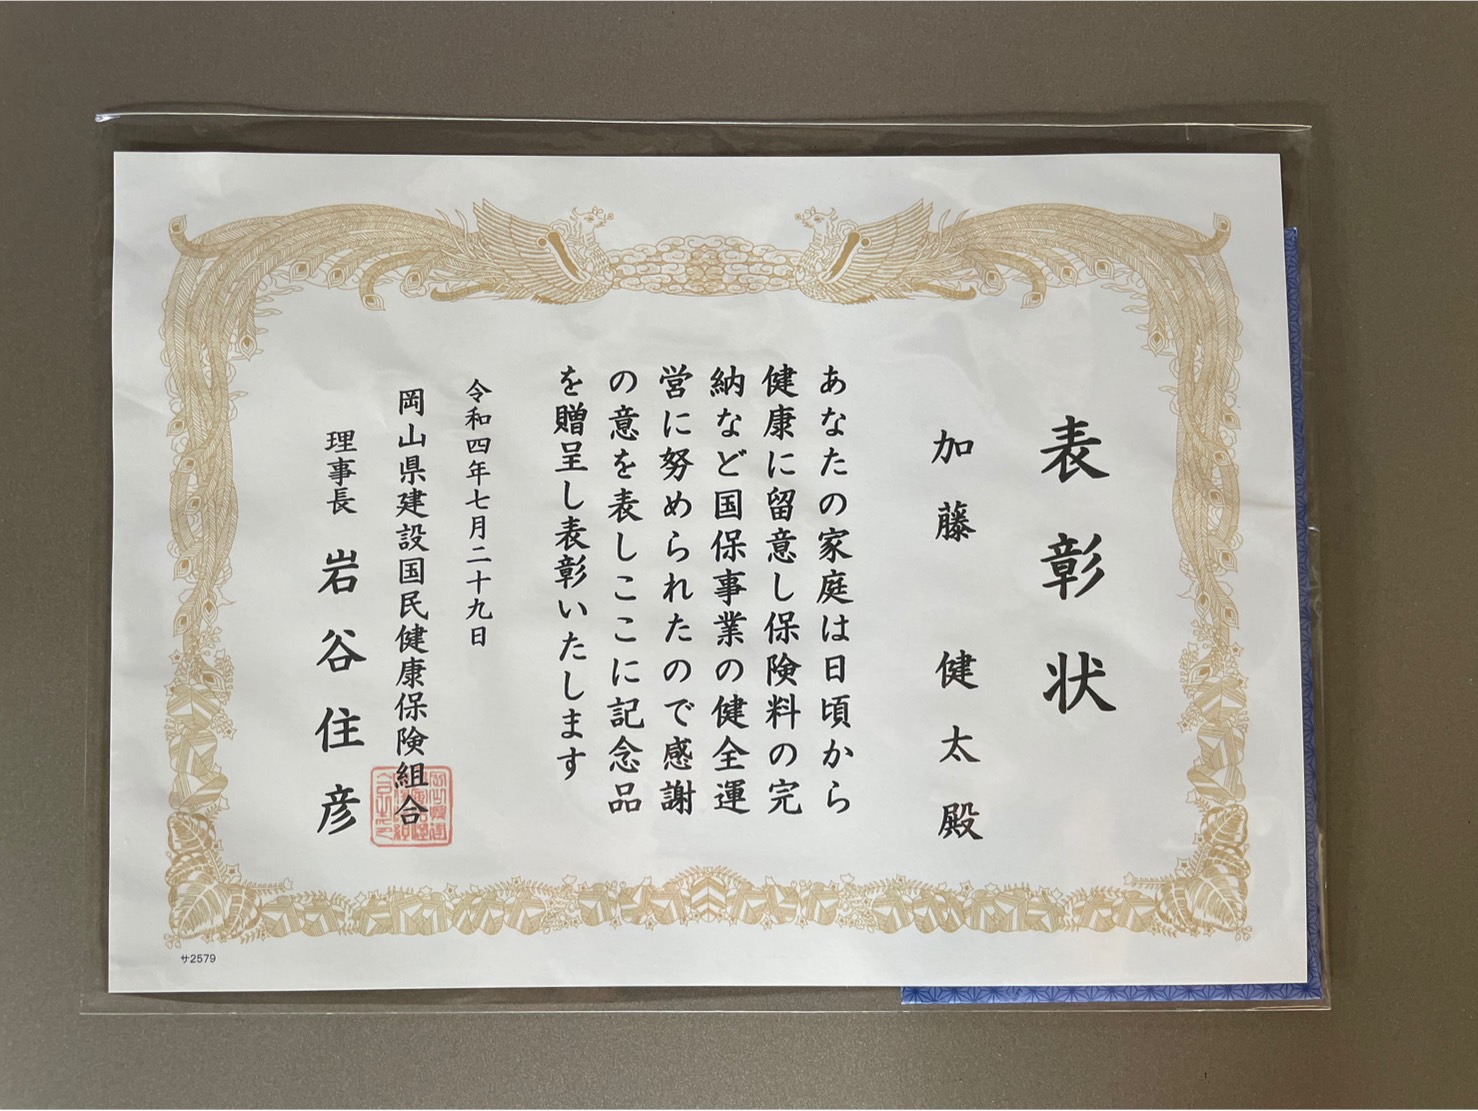 表彰状
加藤 健太殿
あなたの家庭は日頃から
健康に留意し保険料の完
納など国保事業の健全運
営に努められたので感謝
の意を表しここに記念品
を贈呈し表彰いたします
令和四年七月二十九日
岡山県建設国民健康保険組合
理事長 岩谷住彦
サ2579